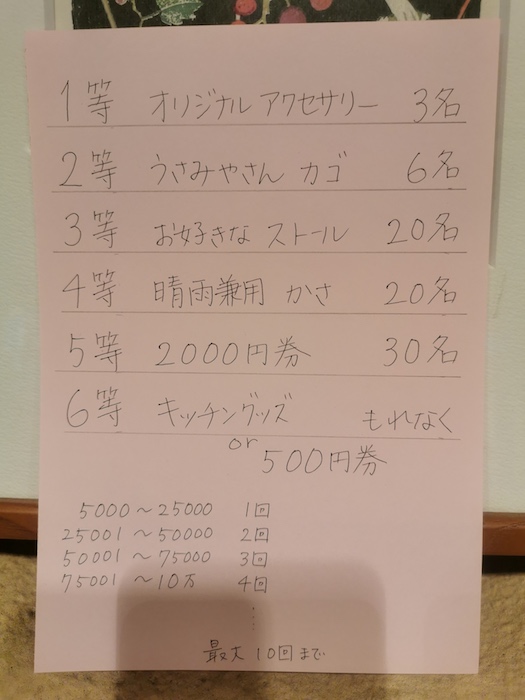 1等 オリジナル アクセサリー 3名
2等 うさみやさん カゴ 6名
3等 お好きな ストール 20名
4等 晴雨兼用 かさ 20名
5等 2000円券 30名
6等 キッチングッズ もれなく
or 500円券
5000～25000 1回
25001～50000 2回
50001～75000 3回
75001～10万 4回
⋮
最大10回まで